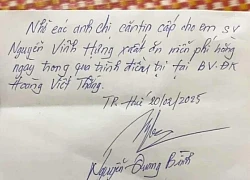 Nhờ các anh chị căn tin cấp cho em SV
Nguyễn Vĩnh Hưng xuất ăn miễn phí hàng
ngày trong quá trình điều trị tại BV.ĐK
Hoàng Viết Thắng.
TP. Huế 20/02/2025
Nguyễn Đương Bình